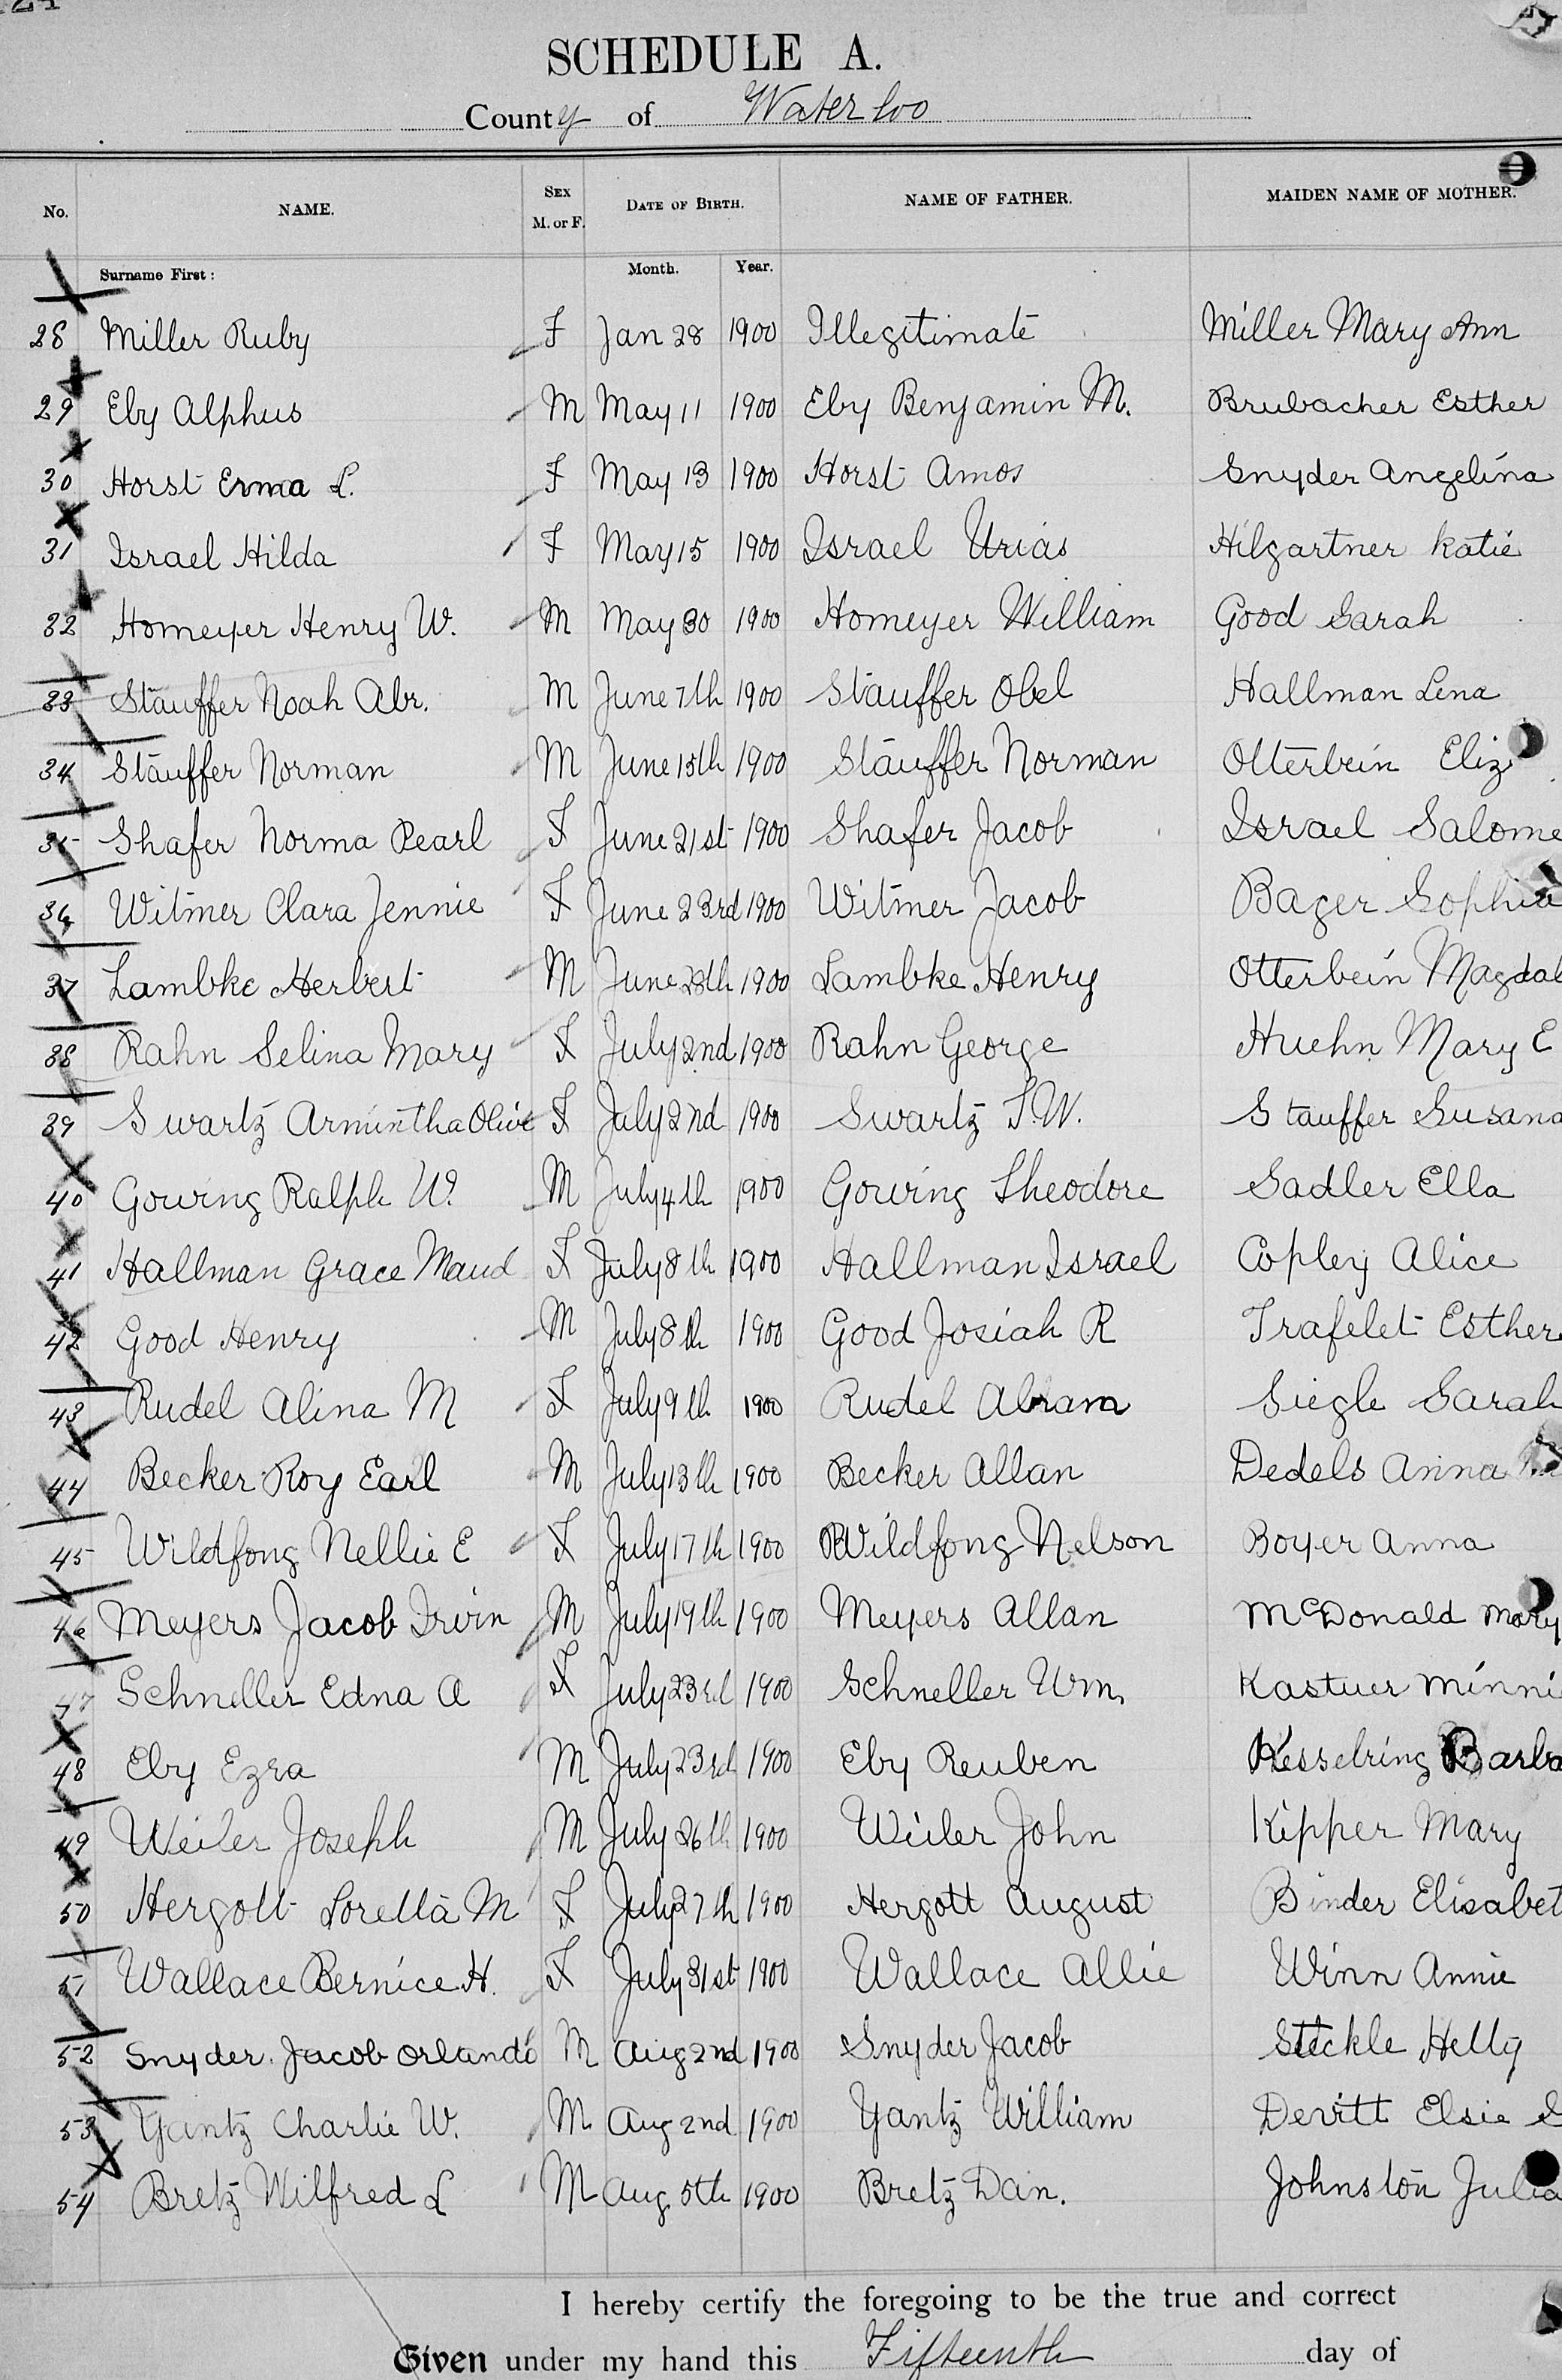 SCHEDULE A.
County of Waterloo
No. NAME. SEX M. or F. DATE OF BIRTH. NAME OF FATHER. MAIDEN NAME OF MOTHER.
Surname First: Month. Year.
28 Miller Ruby F Jan 28 1900 Illegitimate Miller Mary Ann
29 Eby Alphus M May 11 1900 Eby Benjamin M. Brubacher Esther
30 Horst Erma L. F May 13 1900 Horst Amos Snyder Angelina
31 Israel Hilda F May 15 1900 Israel Urias Hilgartner Katie
32 Homeyer Henry W. M May 30 1900 Homeyer William Good Sarah
33 Stauffer Noah Abr. M June 7th 1900 Stauffer Obel Hallman Lena
34 Stauffer Norman M June 15th 1900 Stauffer Norman Otterbein Eliz
35 Shafer Norma Pearl F June 21st 1900 Shafer Jacob Israel Salome
36 Witmer Clara Jennie F June 23rd 1900 Witmer Jacob Bager Sophia
37 Lambke Herbert M June 28th 1900 Lambke Henry Otterbein Magdal
38 Rahn Selina Mary F July 2nd 1900 Rahn George Huehn Mary E
39 Swartz Armintha Olive F July 2nd 1900 Swartz T.W. Stauffer Susana
40 Gowing Ralph W. M July 4th 1900 Gowing Theodore Sadler Ella
41 Hallman Grace Maud F July 8th 1900 Hallman Israel Copley Alice
42 Good Henry M July 8th 1900 Good Josiah R Trafelet Esther
43 Rudel Alina M F July 9th 1900 Rudel Abram Siegle Sarah
44 Becker Roy Earl M July 13th 1900 Becker Allan Dedels Anna
45 Wildfong Nellie E F July 17th 1900 Wildfong Nelson Boyer Anna
46 Meyers Jacob Irvin M July 19th 1900 Meyers Allan McDonald Mary
47 Schneller Edna A F July 23rd 1900 Schneller Wm. Kastuer Minni
48 Eby Ezra M July 23rd 1900 Eby Reuben Kesselring Barba
49 Weiler Joseph M July 26th 1900 Weiler John Kipper Mary
50 Hergott Loretta M F July 27th 1900 Hergott August Binder Elisabet
51 Wallace Bernice H. F July 31st 1900 Wallace Allie Winn Annie
52 Snyder Jacob Orlando M Aug 2nd 1900 Snyder Jacob Steckle Hetty
53 Yantz Charlie W. M Aug 2nd 1900 Yantz William Devitt Elsie S
54 Bretz Wilfred L M Aug 5th 1900 Bretz Dan. Johnston Julia
I hereby certify the foregoing to be the true and correct
Given under my hand this Fifteenth day of